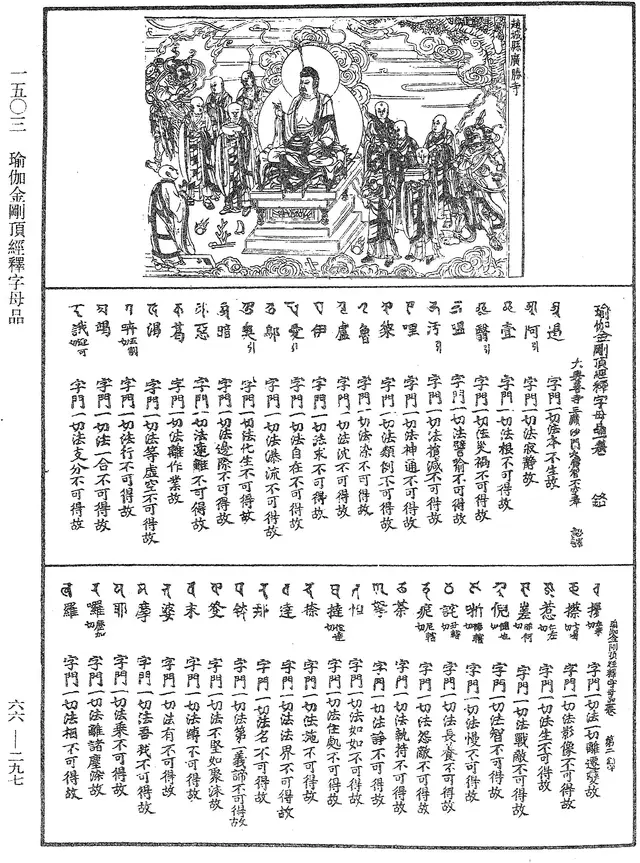 趙城縣廣勝寺
瑜伽金剛頂經釋字母品一卷
大興善寺三藏沙門大廣智不空奉 詔譯
遏 字門一切法本不生故
阿引 字門一切法寂靜故
壹 字門一切法根不可得故
翳引 字門一切法災禍不可得故
嗢 字門一切法譬喻不可得故
汚引 字門一切法損減不可得故
哩 字門一切法神通不可得故
梨 字門一切法類例不可得故
魯 字門一切法染不可得故
盧 字門一切法沈不可得故
伊 字門一切法求不可得故
愛引 字門一切法自在不可得故
鄔 字門一切法瀑流不可得故
奧引 字門一切法化生不可得故
暗 字門一切法邊際不可得故
惡 字門一切法遠離不可得故
葛 字門一切法離作業故
渴 字門一切法等虛空不可得故
字門一切法行不可得故
竭 字門一切法一合不可得故
誐 字門一切法支分不可得故
瑜伽金剛頂經釋字母品一卷 第二
拶 字門一切離遷變故
擦 字門一切法影像不可得故
惹 字門一切法生不可得故
嵯 字門一切法戰敵不可得故
倪 字門一切法智不可得故
哳 字門一切法慢不可得故
詫 字門一切法長養不可得故
痆 字門一切法怨敵不可得故
茶 字門一切法執持不可得故
拏 字門一切法諍不可得故
怛 字門一切法如如不可得故
撻 字門一切法住處不可得故
捺 字門一切法施不可得故
達 字門一切法法界不可得故
那 字門一切法名不可得故
鉢 字門一切法第一義諦不可得故
癹 字門一切法不堅如聚沫故
末 字門一切法縛不可得故
婆 字門一切法有不可得故
摩 字門一切法吾我不可得故
耶 字門一切法乘不可得故
囉 字門一切法離諸塵染故
羅 字門一切法相不可得故
一五〇三 瑜伽金剛頂經釋字母品
六六—二九七